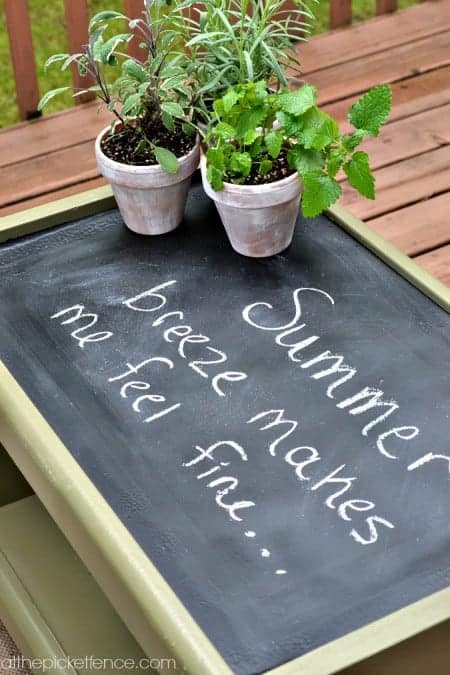 Summer
breeze makes
me feel fine...
atthepicketfence.com